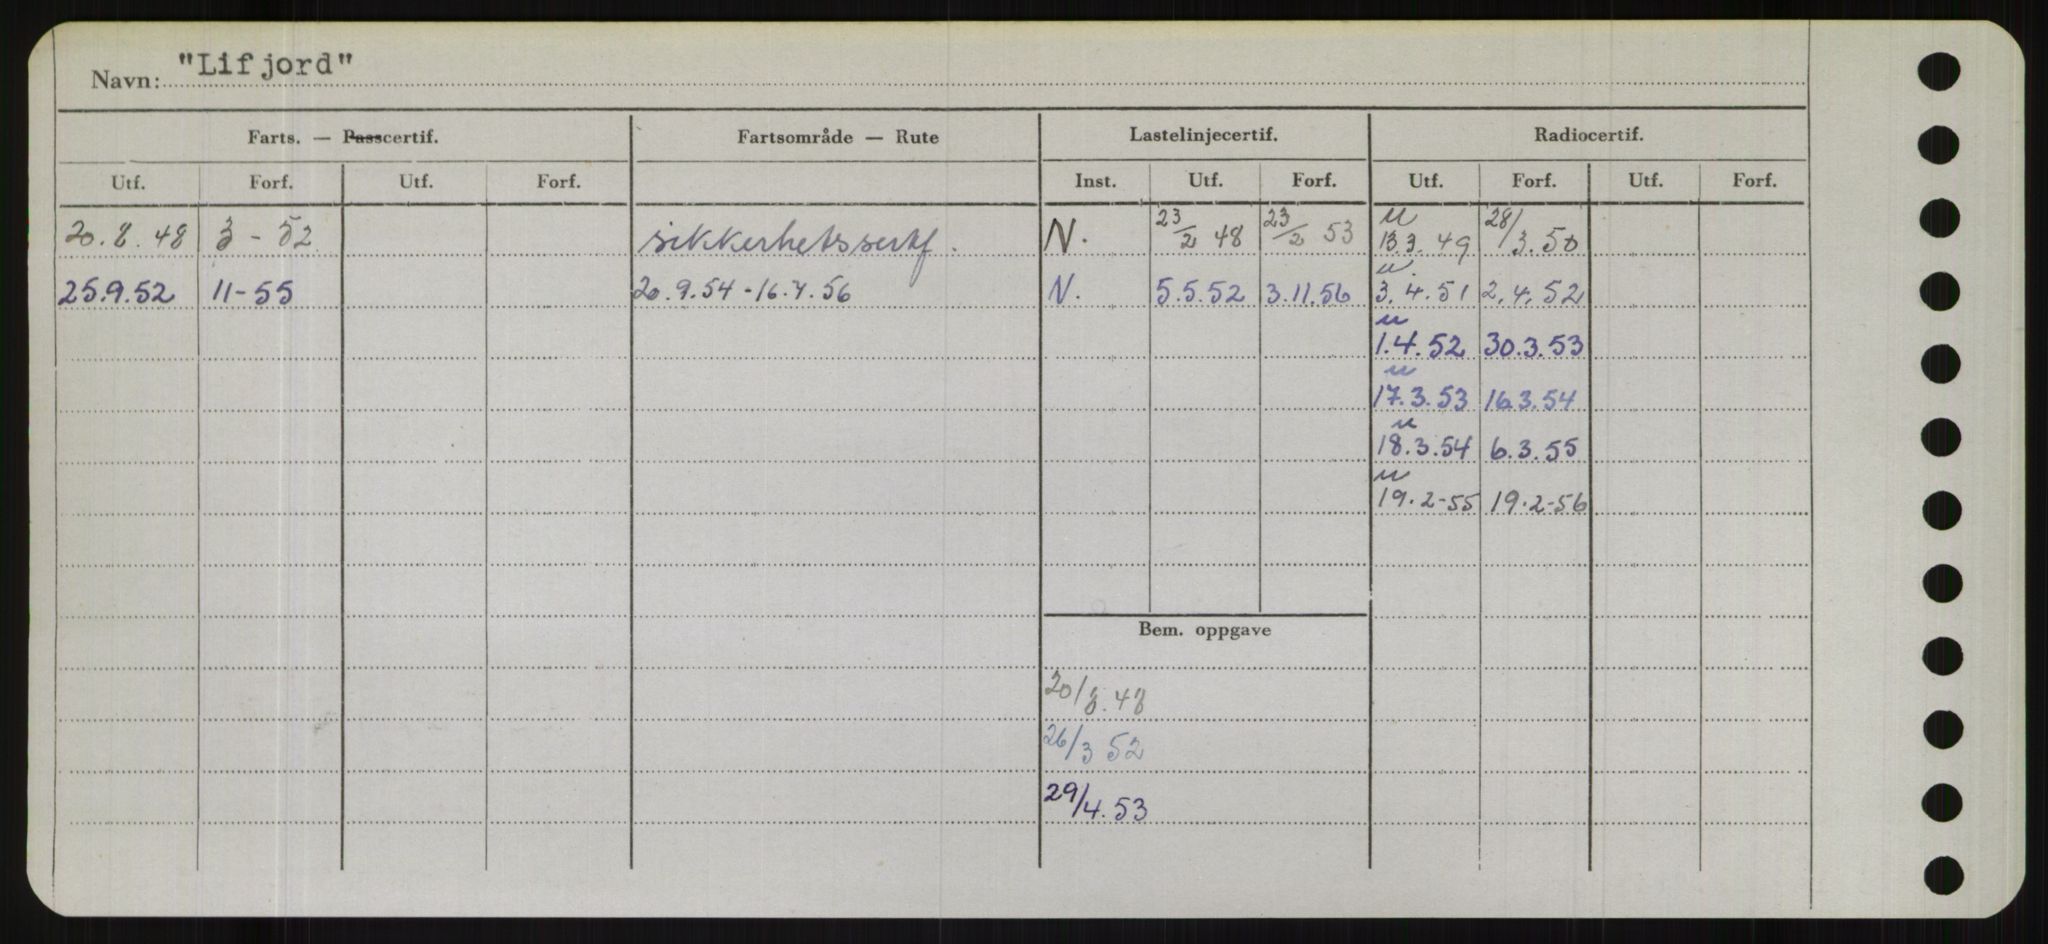 Navn: "Lifjord"
Farts. — Passcertif. Fartsområde — Rute Lastelinjecertif. Radiocertif.
Utf. Forf. Utf. Forf. Inst. Utf. Forf. Utf. Forf. Utf. Forf.
20.8.48 3 - 52 sikkerhetssertf. N. 23/2 48 23/2 53 u 13.3.49 28/3.50
25.9.52 11-55 20.9.54-16.7.56 N. 5.5.52 3.11.56 u 3.4.51 2.4.52
u 1.4.52 30.3.53
u 17.3.53 16.3.54
u 18.3.54 6.3.55
u 19.2-55 19.2-56
Bem. oppgave
20/8.48
26/3 52
29/4.53